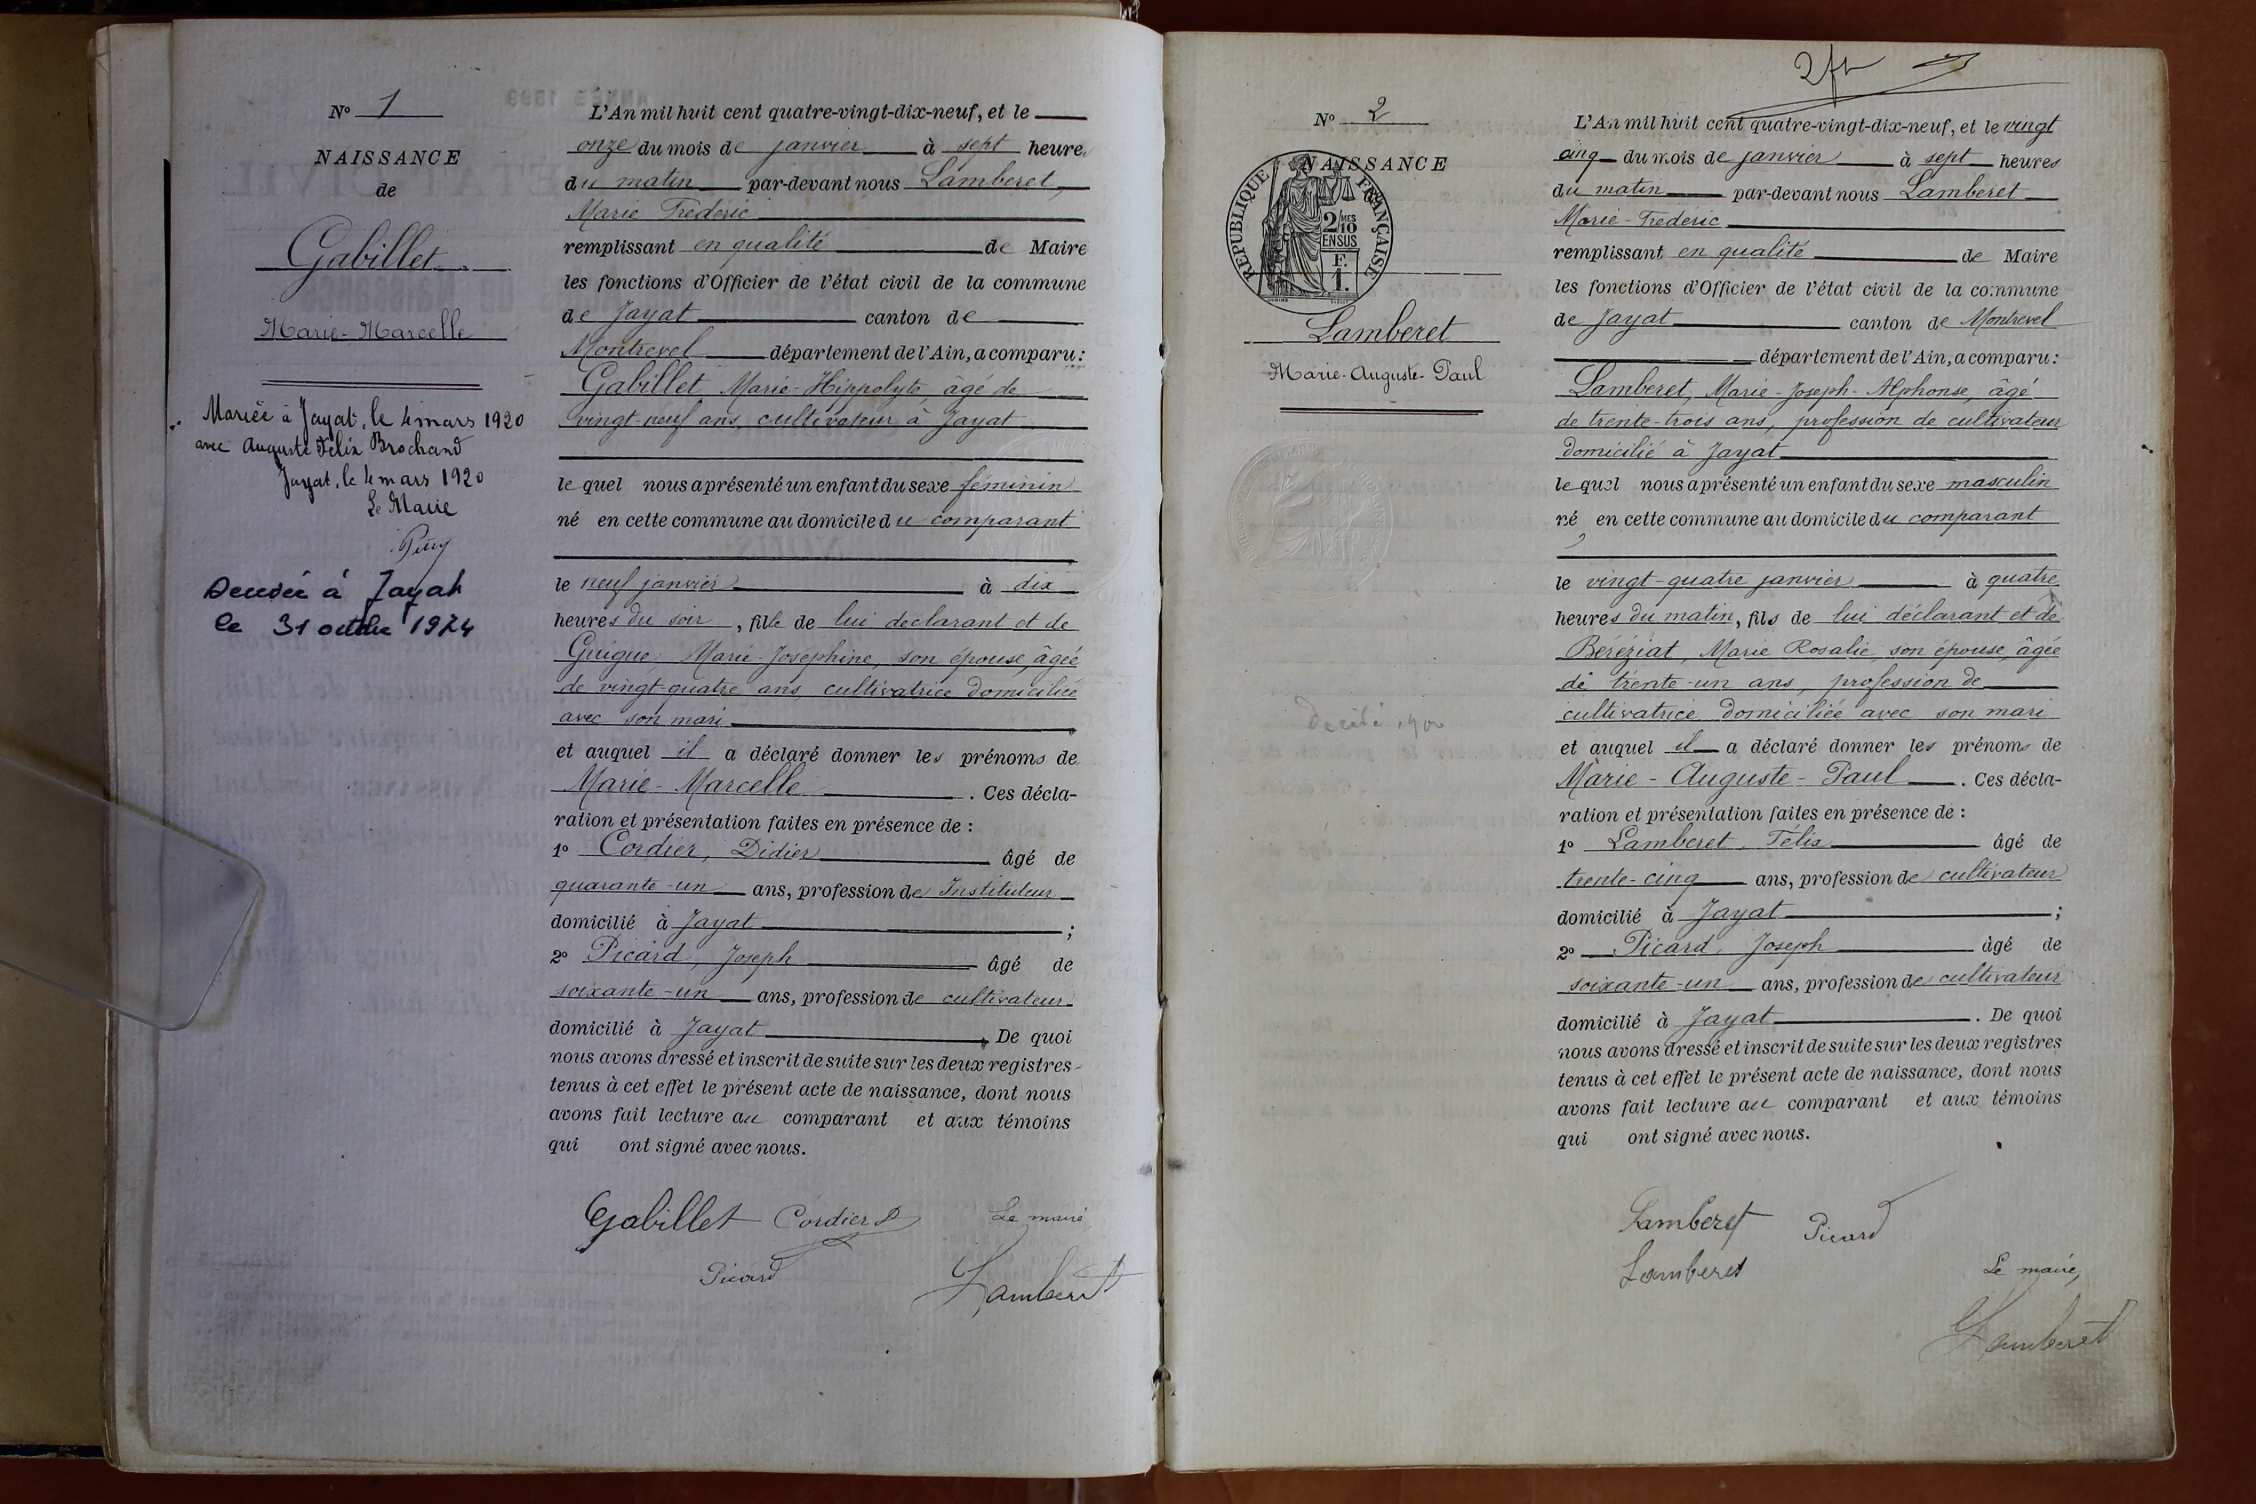 N° 1
NAISSANCE
de
Gabillet
Marie-Marcelle
Mariée à Jayat, le 4 mars 1920
avec Auguste Félix Brochand
Jayat, le 4 mars 1920
Le Maire
Décédée à Jayat
le 31 octobre 1974
L'An mil huit cent quatre-vingt-dix-neuf, et le
onze du mois de janvier à sept heures
du matin par-devant nous Lamberet,
Marie Frederic
remplissant en qualité de Maire
les fonctions d'Officier de l'état civil de la commune
de Jayat canton de
Montrevel département de l'Ain, a comparu :
Gabillet Marie-Hippolyte, âgé de
vingt-neuf ans, cultivateur à Jayat
le quel nous a présenté un enfant du sexe féminin
né en cette commune au domicile du comparant
le neuf janvier à dix
heures du soir, fille de lui déclarant et de
Guigue, Marie-Josephine, son épouse, âgée
de vingt-quatre ans, cultivatrice domiciliée
avec son mari
et auquel il a déclaré donner les prénoms de
Marie-Marcelle. Ces décla-
ration et présentation faites en présence de :
1° Cordier, Didier âgé de
quarante-un ans, profession de Instituteur
domicilié à Jayat ;
2° Picard, Joseph âgé de
soixante-un ans, profession de cultivateur
domicilié à Jayat. De quoi
nous avons dressé et inscrit de suite sur les deux registres
tenus à cet effet le présent acte de naissance, dont nous
avons fait lecture au comparant et aux témoins
qui ont signé avec nous.
Gabillet Cordier D Le maire
Picard
Lamberet
N° 2
NAISSANCE
RÉPUBLIQUE FRANÇAISE
2/10 MES
EN SUS
F.
1.
Lamberet
Marie-Auguste-Paul
Décédé 1900
L'An mil huit cent quatre-vingt-dix-neuf, et le vingt
cinq du mois de janvier à sept heures
du matin par-devant nous Lamberet
Marie-Frederic
remplissant en qualité de Maire
les fonctions d'Officier de l'état civil de la commune
de Jayat canton de Montrevel
département de l'Ain, a comparu :
Lamberet, Marie-Joseph-Alphonse, âgé
de trente-trois ans, profession de cultivateur
domicilié à Jayat
le quel nous a présenté un enfant du sexe masculin
né en cette commune au domicile du comparant
le vingt-quatre janvier à quatre
heures du matin, fils de lui déclarant et de
Béréziat, Marie Rosalie, son épouse, âgée
de trente-un ans, profession de
cultivatrice domiciliée avec son mari
et auquel il a déclaré donner les prénoms de
Marie-Auguste-Paul. Ces décla-
ration et présentation faites en présence de :
1° Lamberet, Félix âgé de
trente-cinq ans, profession de cultivateur
domicilié à Jayat ;
2° Picard, Joseph âgé de
soixante-un ans, profession de cultivateur
domicilié à Jayat. De quoi
nous avons dressé et inscrit de suite sur les deux registres
tenus à cet effet le présent acte de naissance, dont nous
avons fait lecture au comparant et aux témoins
qui ont signé avec nous.
Lamberet Picard
Lamberet Le maire,
Lamberet